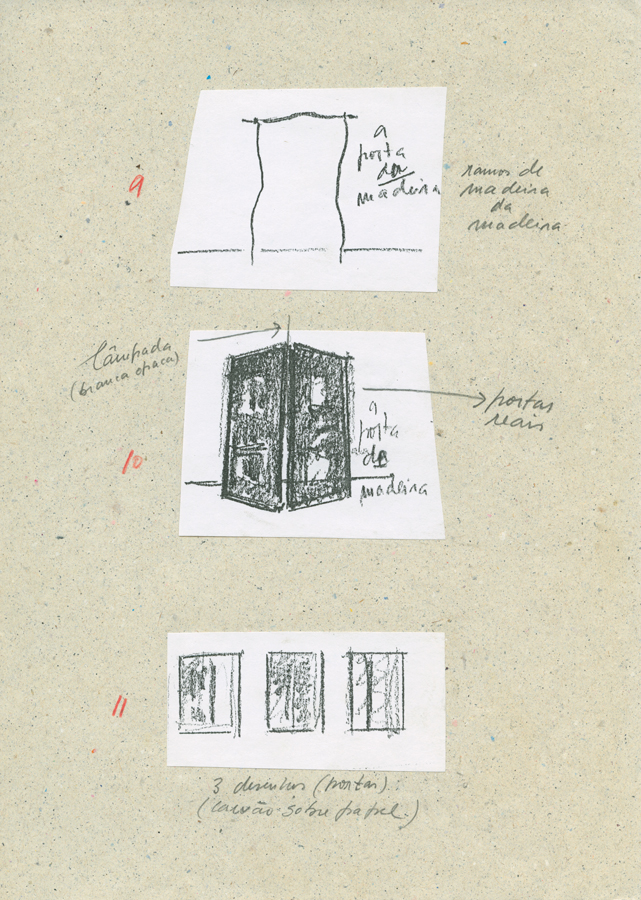 9
a
porta
da
madeira
ramos de
madeira
da
madeira
lâmpada
(branca opaca)
portas
reais
10
a
porta
madeira
11
3 desenhos (portas).
(carvão sobre papel.)